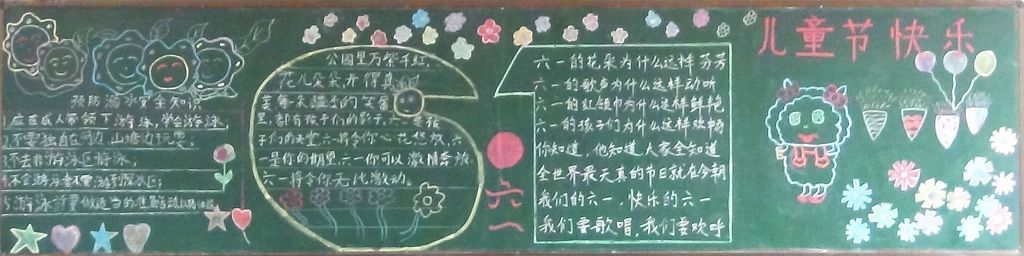 预防溺水安全知识
1.应在成人带领下游泳,学会游泳,
2.不要独自在河边、山塘边玩耍,
3.不去非游泳区游泳;
4.不会游泳者不要游到深水区;
5.游泳前要做适当的准备活动
公园里万紫千红,
花儿朵朵开得真
里,都有孩子们的影子,六一是孩
子们的天堂六一将令你心花怒放,六
一是你的期望,六一你可以激情奔放
六一将令你无比激动。
六一
六一的花朵为什么这样芬芳
六一的歌声为什么这样动听
六一的红领巾为什么这样鲜艳
六一的孩子们为什么这样欢畅
你知道,他知道大家全知道
全世界最天真的节日就在今朝
我们的六一,快乐的六一
我们要歌唱,我们要欢呼
儿童节快乐